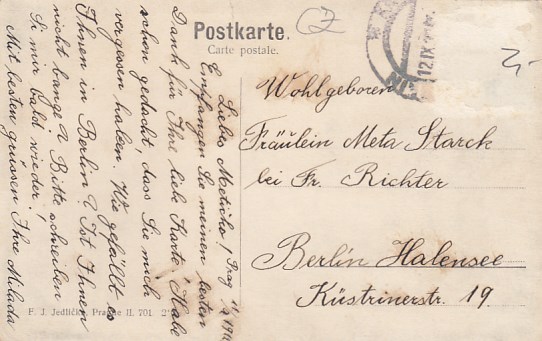 Postkarte.
Carte postale.
CZ
12.IX
2,-
Wohlgeboren
Fräulein Meta Starck
bei Fr. Richter
Berlin Halensee
Küstrinerstr. 19.
Prag 11/
Liebes Metichs!
Empfangen Sie meinen besten
Dank für Ihre liebe Karte! Habe
schon gedacht, dass Sie mich
vergessen haben. Wie gefällt es
Ihnen in Berlin? Ist Ihnen
nicht bange? Bitte schreiben
Si mir bald wieder!
Mit besten grüssen Ihre Milada
F. J. Jedlička, Prague II. 701